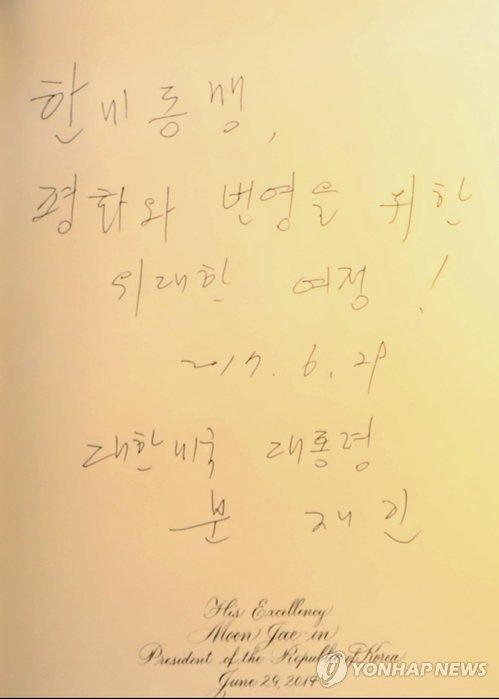 한미동맹,
평화와 번영을 위한
위대한 여정!
2017. 6. 29
대한미국 대통령
문 재 인
His Excellency
Moon Jae-in
President of the Republic of Korea
June 29, 2017
YONHAP NEWS